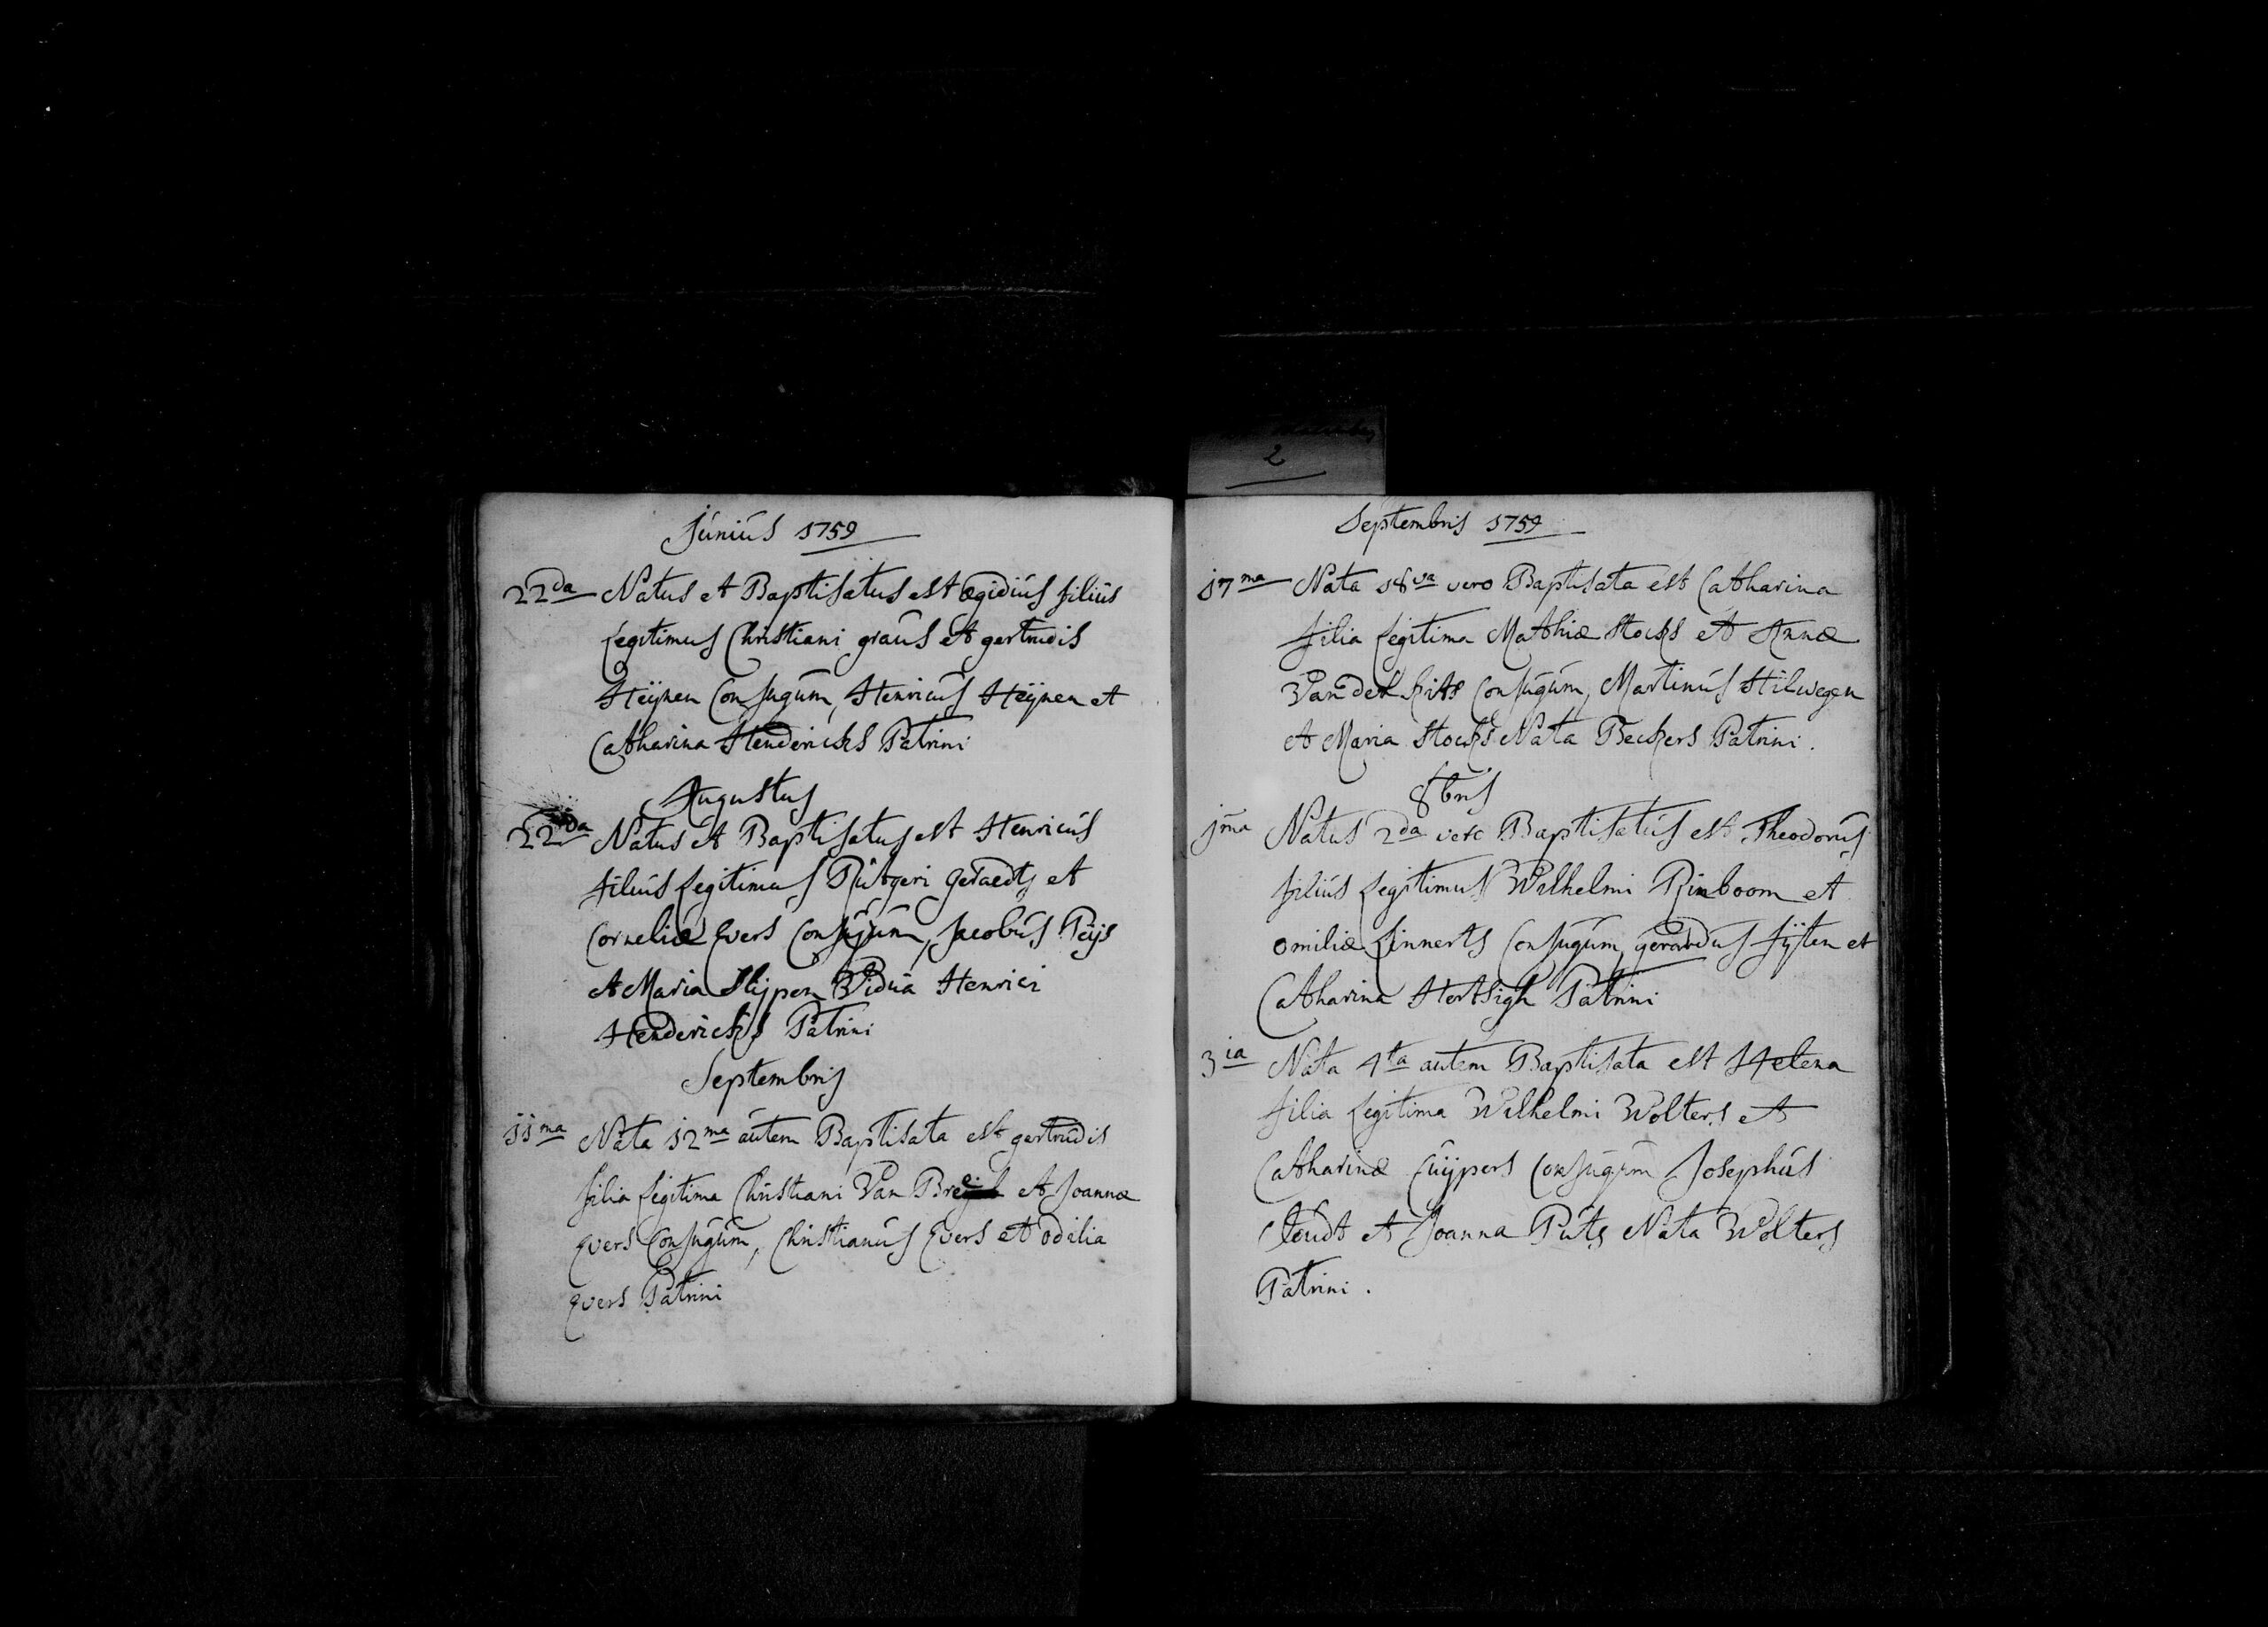 2
Junius 1759
22da Natus et Baptisatus est Ægidius filius
legitimus Christiani graus et gertrudis
Heijnen Conjugum, Henricus Heijnen et
Catharina Hendericks Patrini
Augustus
22da Natus et Baptisatus est Henricus
filius legitimus Rutgeri Geraedts et
Corneliæ Evers Conjugum, Jacobus Peijs
et Maria Slijpen Vidua Henrici
Hendericks Patrini
Septembris
11ma Nata 12ma autem Baptisata est gertrudis
filia legitima Christiani Van et Joannæ
Evers Conjugum, Christianus Evers et Odilia
Evers Patrini
Septembris 1759
17ma Nata 18va vero Baptisata est Catharina
filia legitima Mathiæ Stocks et Annæ
Van der Conjugum, Martinus Hilwegen
et Maria Stocks Nata Beckers Patrini.
8bris
1ma Natus 2da vero Baptisatus est Theodorus
filius legitimus Wilhelmi Rinboom et
omiliæ Linnerts Conjugum, gerardus Sijsten et
Catharina Hertsigh Patrini
3ia Nata 4ta autem Baptisata est Helena
filia legitima Wilhelmi Wolters et
Catharinæ Cuijpers Conjugum Josephus
Cleudt et Joanna Puts Nata Wolters
Patrini.